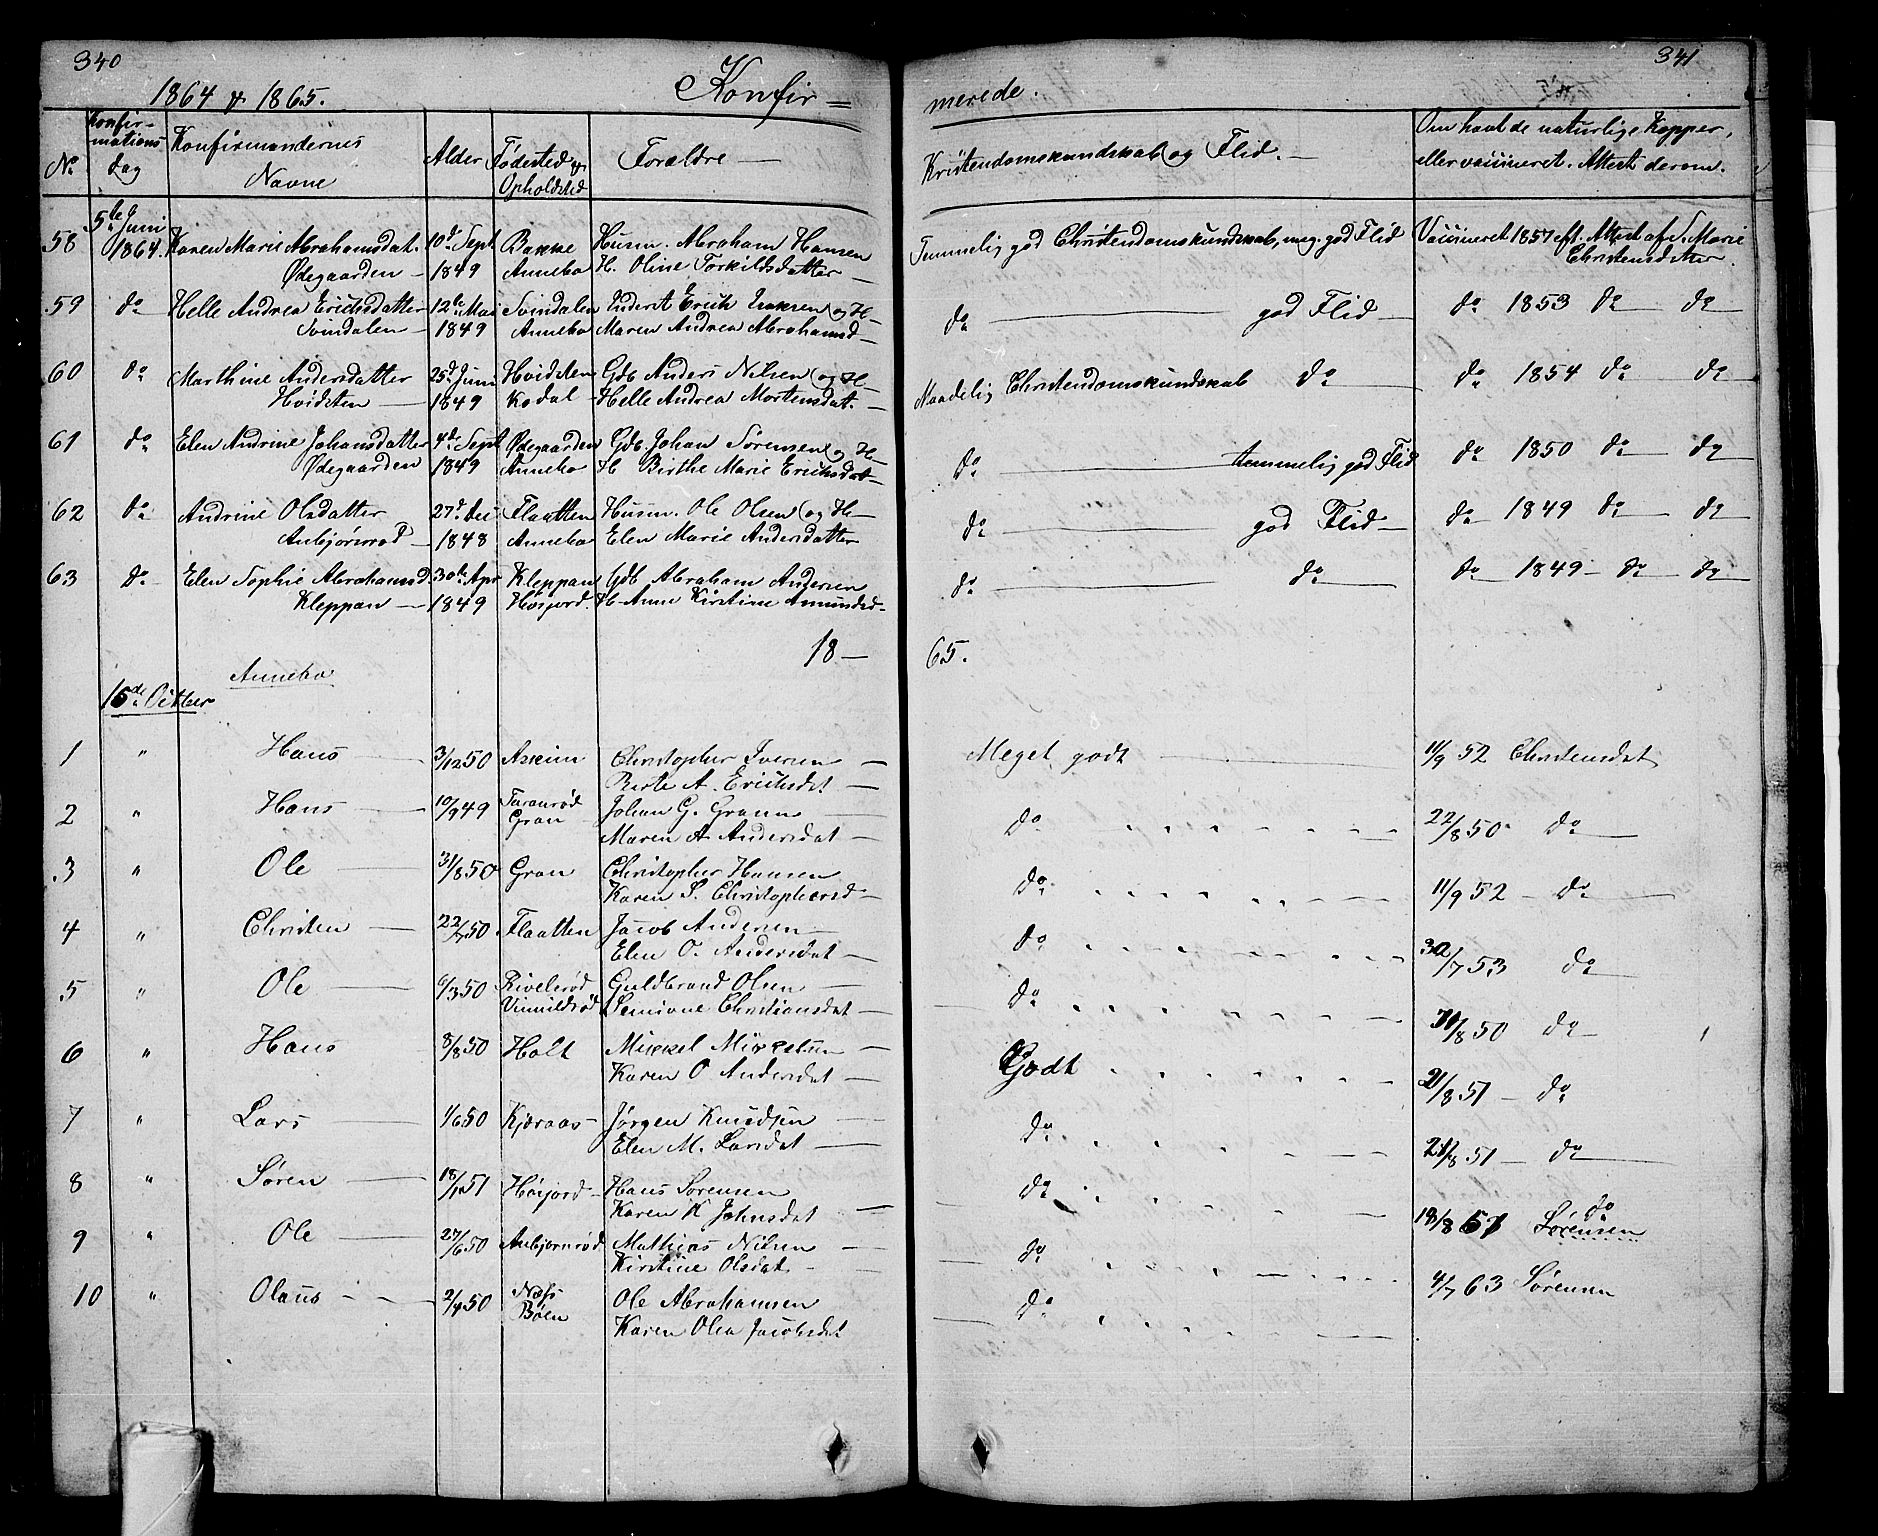 340
1864 & 1865.
Konfir=
No
Konfir-
mations
dag
Konfirmandernes
Navne
Alder
Fødested &
Opholdsted
Forældre
58 5te Juni 1864. Karen Marie Abrahamsdat. 10d Sept Bakke Husm. Abraham Hansen
Ødegaarden 1849 Annebo H. Oline Torkildsdatter
59 do Helle Andrea Erichsdatter 12te Mai Svindalen Inderst Erich Isaksen og H
Svindalen 1849 Annebo Maren Andrea Abrahamsd
60 do Marthine Andersdatter 25d Juni Hvidsten Gdb Anders Nilsen og H
Hvidsten 1849 Kodal Helle Andrea Mortensdat.
61 do Elen Andrine Johansdatter 4de Sept Ødegaarden Gdb. Johan Sørensen og H
Ødegaarden 1849 Annebo H Birthe Marie Erichsdat
62 do Andrine Olsdatter 27d Dec Flaatten Husm. Ole Olsen og H
Anbjørnrød 1848 Annebo Elen Marie Andersdatter
63 do Elen Sophie Abrahamsd. 30te Apr Kleppan Gdb Abraham Andersen
Kleppan 1849 Høsjord. H Anne Kirstine Amundsd
18
Annebo
15de Octber
1 " Hans 3/12 50 Askim Christopher Iversen
Berte A. Erichsdat
2 " Hans 10/9 49 Taranrød Johan G. Grann
Gran Maren A Andersdat
3 " Ole 31/8 50 Gran Christopher Hansen
Karen S. Christophersd
4 " Christen 22/7 50 Flaatten Jacob Andersen
Elen O. Andersdat
5 " Ole 6/3 50 Rivelsrød Guldbrand Olsen
Vimildrød Semione Christiansdat
6 " Hans 8/8 50 Holt Mikkel Mikkelsen
Karen O Andersdat
7 " Lars 1/6 50 Kjæraas Jørgen Knudsen
Elen M. Larsdat
8 " Søren 18/1 51 Høsjord Hans Sørensen
Karen K Johnsdat
9 " Ole 27/6 50 Anbjørnrød Mathias Nilsen
Kirstine Olsdat
10 " Olaus 2/9 50 Næss Ole Abrahamsen
Bøen Karen Olea Jacobsdat
341
merede.
Kristendomskundskab og Flid.
Om havt de naturlige Kopper,
eller vaccineret. Attest derom.
Temmelig god Christendomskundskab, meg. god Flid Vaccineret 1857 eft. Attest af S. Marie
Christensdatter
do god Flid do 1853 do do
Maadelig Christendomskundskab do do 1854 do do
do temmelig god Flid do 1850 do do
do god Flid do 1849 do do
do do do 1849 do do
65.
Meget godt 11/9 52 Christensdat
do 22/8 50 do
do 11/9 52 do
do 30/7 53 do
do 31/8 50 do
Godt 21/8 51 do
do 21/8 51 do
do do
18/8 51 Sørensen
do 4/7 63 Sørensen
do